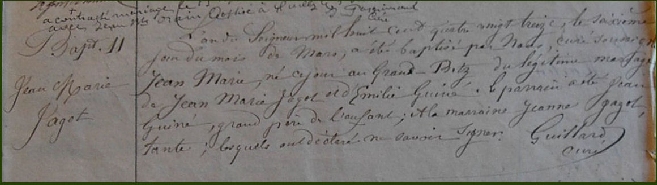 a contracté mariage le
avec Jean
curé
Bapt. 11
Jean Marie
Jagot
L'an du Seigneur mil huit cent quatre vingt treize, le seizième
jour du mois de Mars, a été baptisé par Nous, curé soussigné
Jean Marie, né ce jour au Grand Betz du légitime mariage
de Jean Marie Jagot et d'Emilie Guiné. Le parrain a été Jean
Guiné, grand père de l'enfant; et la marraine Jeanne Jagot,
tante; lesquels ont déclaré ne savoir signer. Guillard
curé